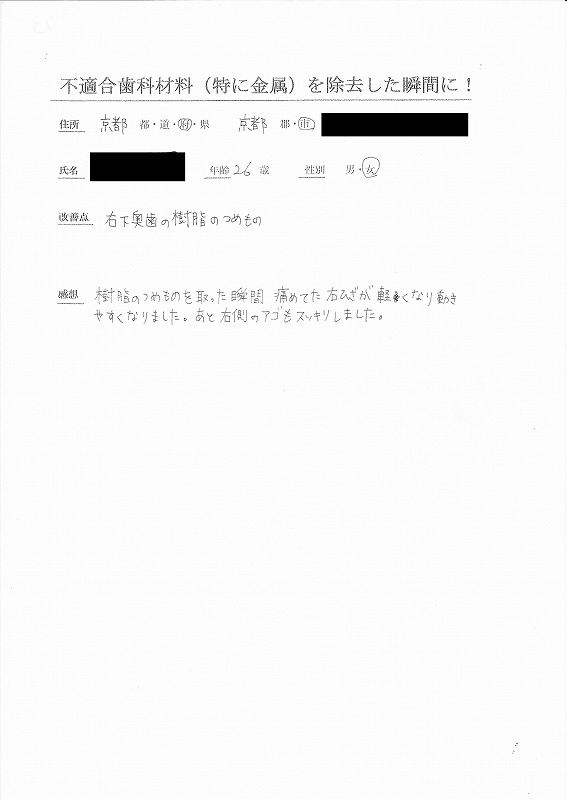 不適合歯科材料（特に金属）を除去した瞬間に！
住所 京都 都・道・府・県 京都 郡・市
氏名 年齢 26 歳 性別 男・女
改善点 右下奥歯の樹脂のつめもの
感想 樹脂のつめものを取った瞬間 痛めてた右ひざが軽くなり動き
やすくなりました。あと右側のアゴもスッキリしました。